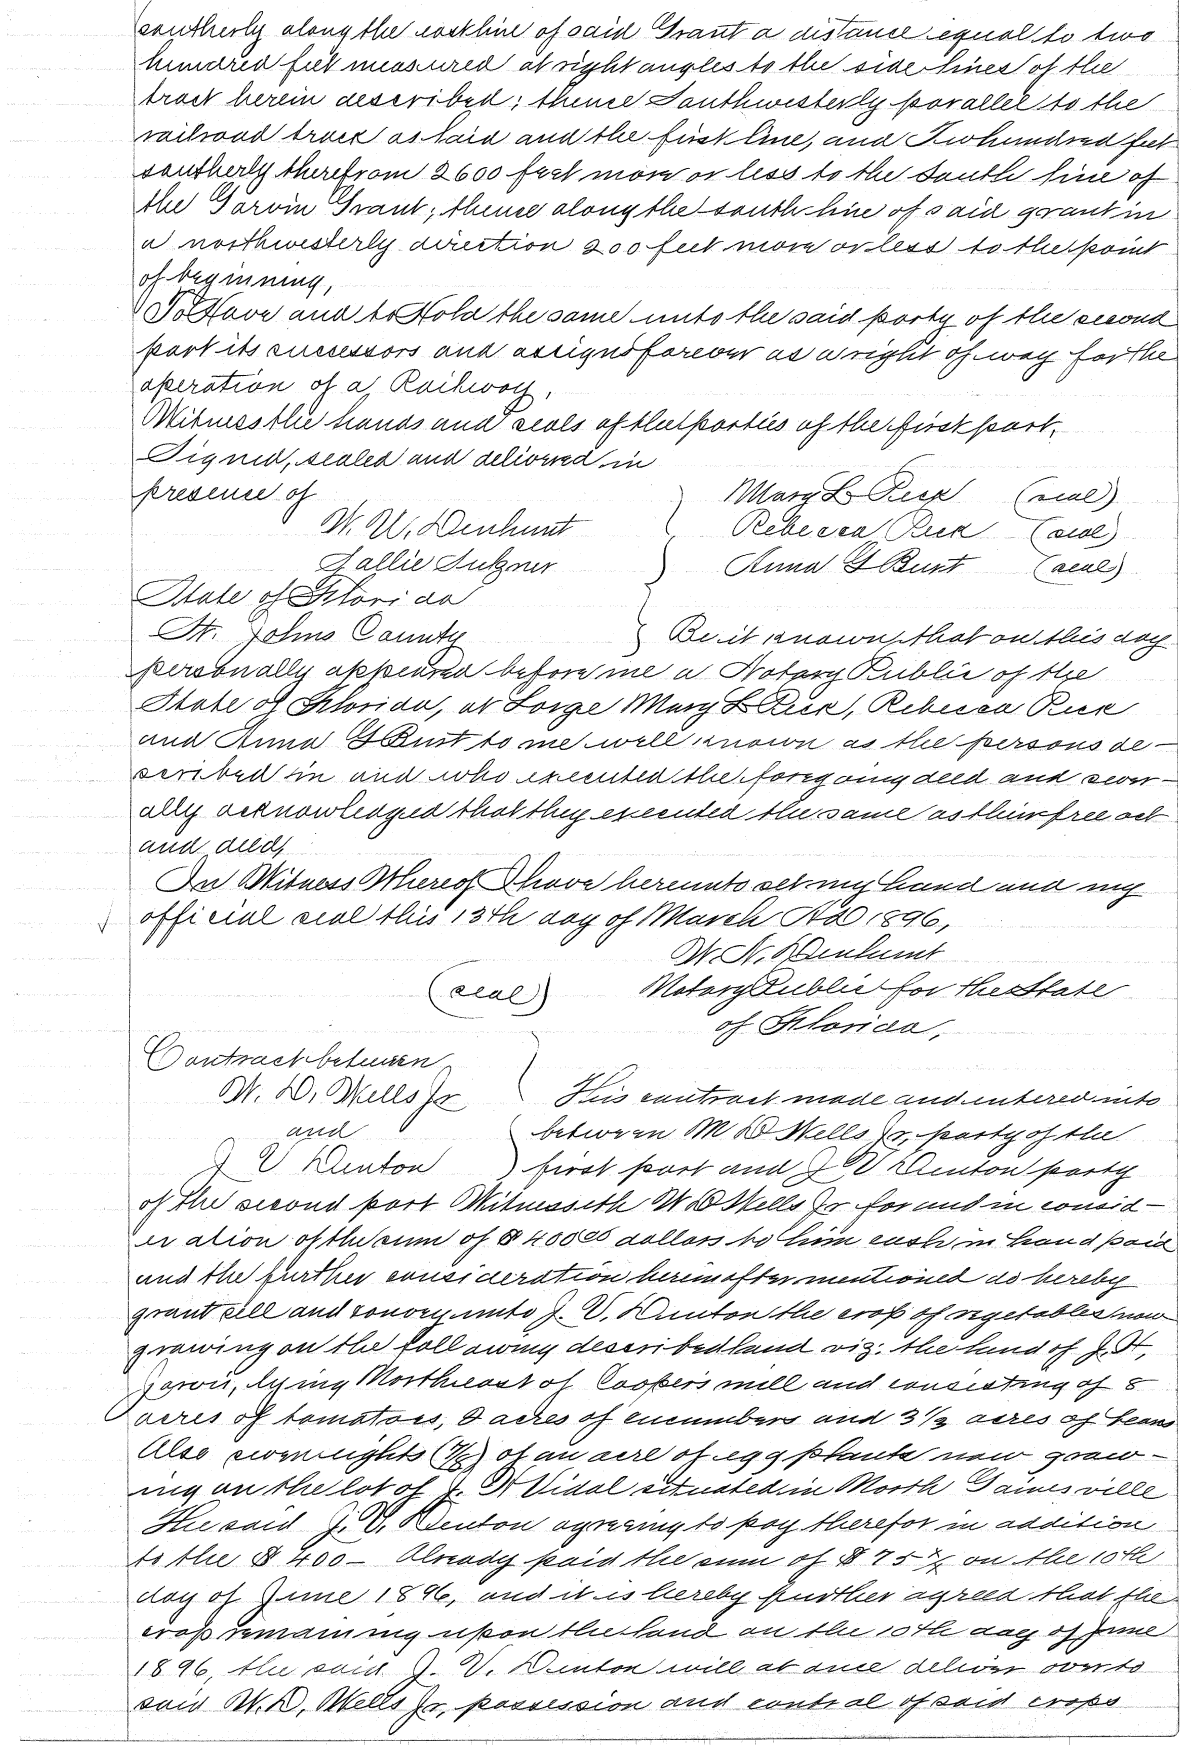 southerly along the east line of said Grant a distance equal to two
hundred feet measured at right angles to the side lines of the
tract herein described; thence Southwesterly parallel to the
railroad track as laid and the first line, and Two hundred feet
southerly therefrom 2600 feet more or less to the South line of
the Garvin Grant; thence along the south line of said grant in
a northwesterly direction 200 feet more or less to the point
of beginning,
To Have and to Hold the same unto the said party of the second
part its successors and assigns forever as a right of way for the
operation of a Railway,
Witness the hands and seals of the parties of the first part,
Signed, sealed and delivered in
presence of Mary L Peck (seal)
W. W. Dewhurst Rebecca Peck (seal)
Sallie Anna G Burt (seal)
State of Florida
St. Johns County Be it known that on this day
personally appeared before me a Notary Public of the
State of Florida, at Large Mary L Peck, Rebecca Peck
and Anna G Burt to me well known as the persons de-
scribed in and who executed the foregoing deed and sever-
ally acknowledged that they executed the same as their free act
and deed,
In Witness Whereof I have hereunto set my hand and my
official seal this 13th day of March A D 1896,
W. W. Dewhurst
(seal) Notary Public for the State
of Florida,
Contract between
W. D. Wells Jr This contract made and entered into
and between W D Wells Jr, party of the
J V Denton first part and J V Denton party
of the second part Witnesseth W D Wells Jr for and in consid-
eration of the sum of $400 00 dollars to him cash in hand paid
and the further consideration hereinafter mentioned do hereby
grant sell and convey unto J. V. Denton the crop of vegetables now
growing on the following described land viz: the land of J. H,
lying Northeast of Coopers mill and consisting of 8
acres of tomatoes, acres of cucumbers and 3 1/2 acres of beans
Also seven eights (7/8) of an acre of egg plants now grow-
ing on the lot of J. Vidal situated in North Gainesville
The said J. V. Denton agreeing to pay therefor in addition
to the $400- Already paid the sum of $75 on the 10th
day of June 1896, and it is hereby further agreed that the
crop remaining upon the land on the 10th day of June
1896, the said J. V. Denton will at once deliver over to
said W. D, Wells Jr, possession and control of said crops